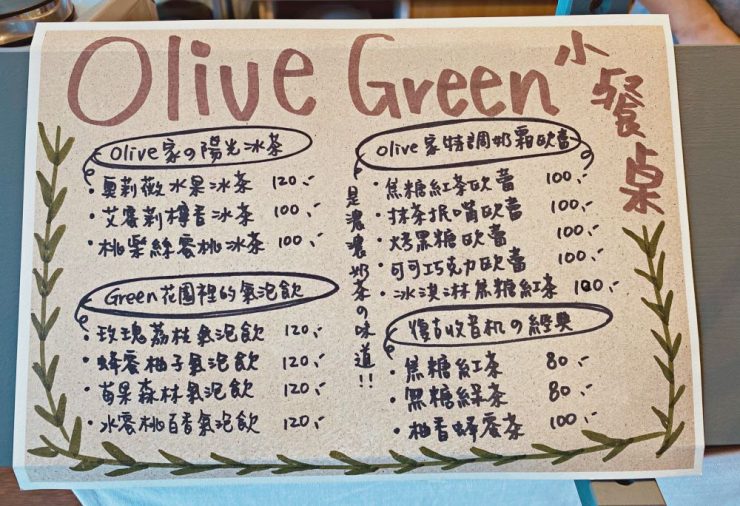 Olive Green 小餐桌
Olive家の陽光冰茶
夏莉薇水果冰茶 120.-
艾蜜莉檸香冰茶 100.-
桃樂絲蜜桃冰茶 100.-
Green花園裡的氣泡飲
玫瑰荔枝氣泡飲 120.-
蜂蜜柚子氣泡飲 120.-
莓果森林氣泡飲 120.-
水蜜桃百香氣泡飲 120.-
是濃濃奶茶の味道!!
Olive家特調奶霜欧蕾
焦糖紅茶欧蕾 100.-
抹茶抿嘴欧蕾 100.-
烤黑糖欧蕾 100.-
可可巧克力欧蕾 100.-
冰淇淋焦糖紅茶 120.-
復古收音机の經典
焦糖紅茶 80.-
黑糖綠茶 80.-
柚香蜂蜜茶 100.-